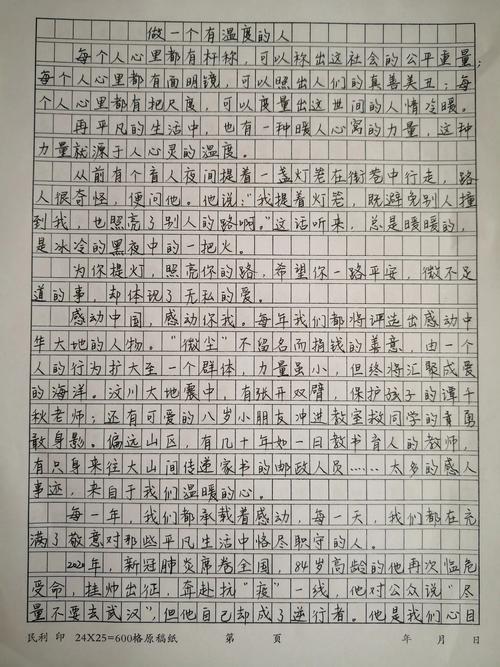 做一个有温度的人
每个人心里都有杆称，可以称出这社会的公平重量；
每个人心里都有面明镜，可以照出人们的真善美丑；每
个人心里都有把尺度，可以度量出这世间的人情冷暖。
再平凡的生活中，也有一种暖人心窝的力量，这种
力量就源于人心灵的温度。
从前有个盲人夜间提着一盏灯笼在街巷中行走，路
人很奇怪，便问他。他说：“我提着灯笼，既避免别人撞
到我，也照亮了别人的路啊。”这话听来，总是暖暖的，
是冰冷的黑夜中的一把火。
为你提灯，照亮你的路，希望你一路平安，微不足
道的事，却体现了无私的爱。
感动中国，感动你我。每年我们都将评选出感动中
华大地的人物。“微尘”不留名而捐钱的善意，由一个
人的行为扩大至一个群体，力量虽小，但终将汇聚成爱
的海洋。汶川大地震中，有张开双臂，保护孩子的谭千
秋老师；还有可爱的八岁小朋友冲进教室救同学的勇
敢身影。偏远山区，有几十年如一日教书育人的教师，
有只身来往大山间传递家书的邮政人员……太多的感人
事迹，来自于我们温暖的心。
每一年，我们都承载着感动，每一天，我们都在充
满了敬意对那些平凡生活中恪尽职守的人。
2020年，新冠肺炎席卷全国，84岁高龄的他再次临危
受命，挂帅出征，奔赴抗“疫”一线，他对公众说“尽
量不要去武汉”，但他自己却成了逆行者。他是我们心目
民利 印 24X25=600格原稿纸 第 页 年 月 日